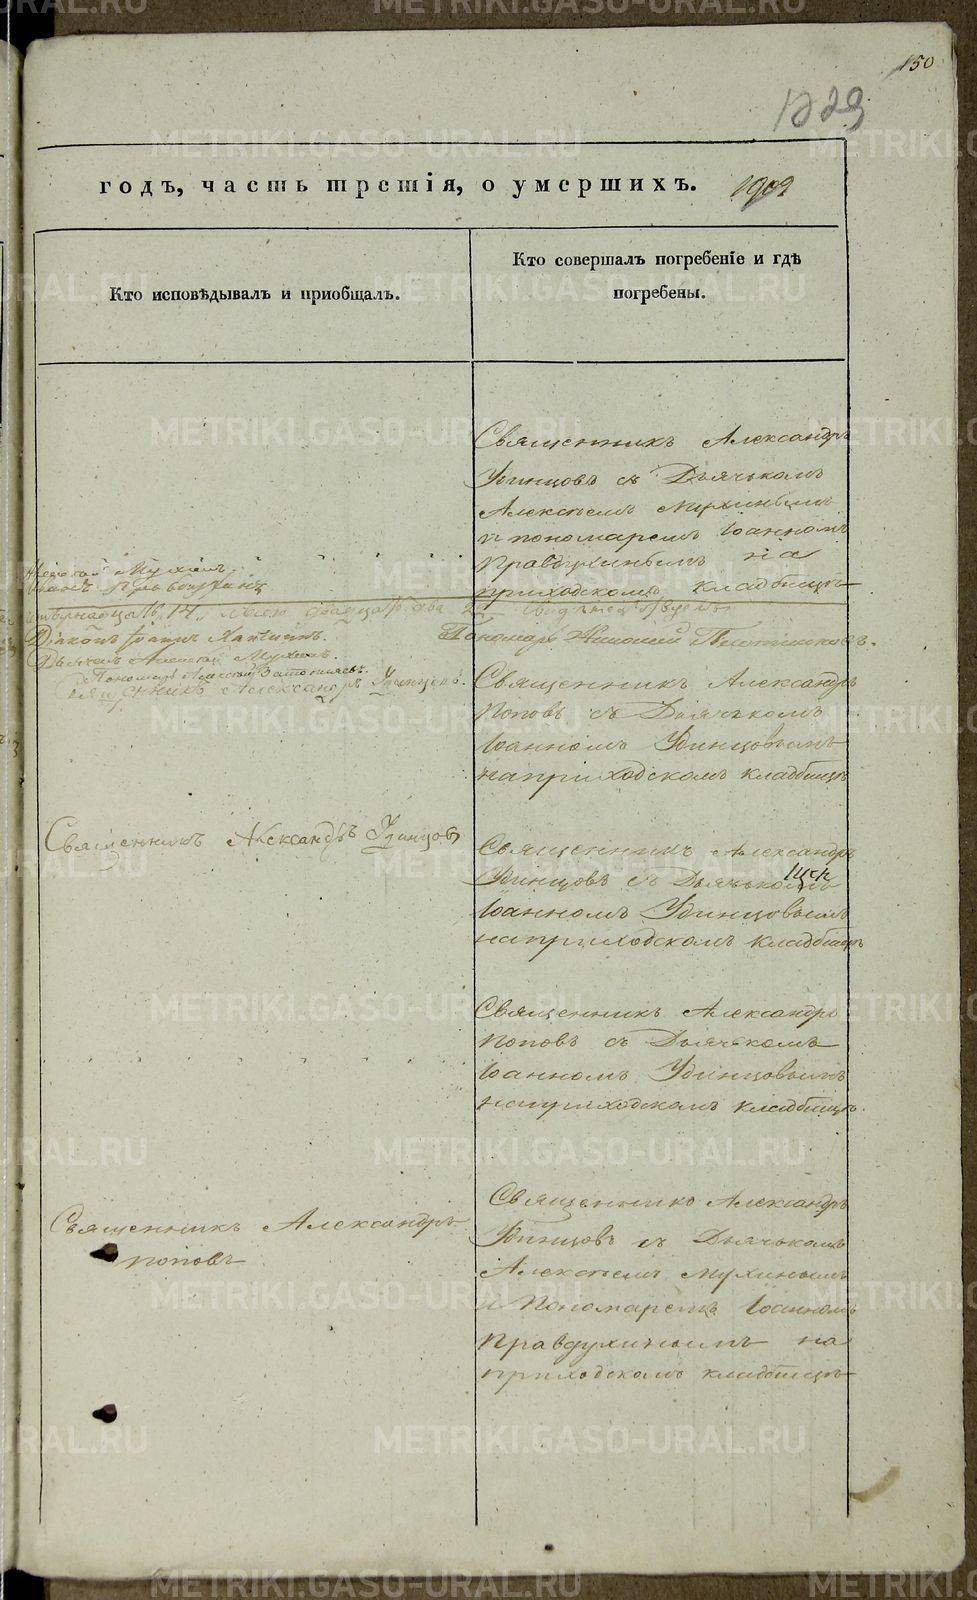 150
1223
годъ, часть третія, о умершихъ. 1902
Кто исповѣдывалъ и пріобщалъ.
Кто совершалъ погребеніе и гдѣ
погребены.
Священникъ Александръ
Удинцовъ съ Дьячькомъ
Алексѣемъ Мухинымъ
и пономаремъ Іоанномъ
Правдухинымъ на
приходскомъ кладбищѣ
Дьячекъ Алексѣй Мухинъ.
Священникъ Александръ Удинцовъ.
Священникъ Александръ
Поповъ съ Дьячькомъ
Іоанномъ Удинцовымъ
на приходскомъ кладбищѣ
Священникъ Александръ Удинцовъ
Священникъ Александръ
Удинцовъ съ Дьячькомъ
Іоанномъ Удинцовымъ
на приходскомъ кладбищѣ
Священникъ Александръ
Поповъ съ Дьячькомъ
Іоанномъ Удинцовымъ
на приходскомъ кладбищѣ.
Священникъ Александръ
Поповъ
Священникъ Александръ
Удинцовъ съ Дьячькомъ
Алексѣемъ Мухинымъ
и Пономаремъ Іоанномъ
Правдухинымъ на
приходскомъ кладбищѣ
METRIKI.GASO-URAL.RU